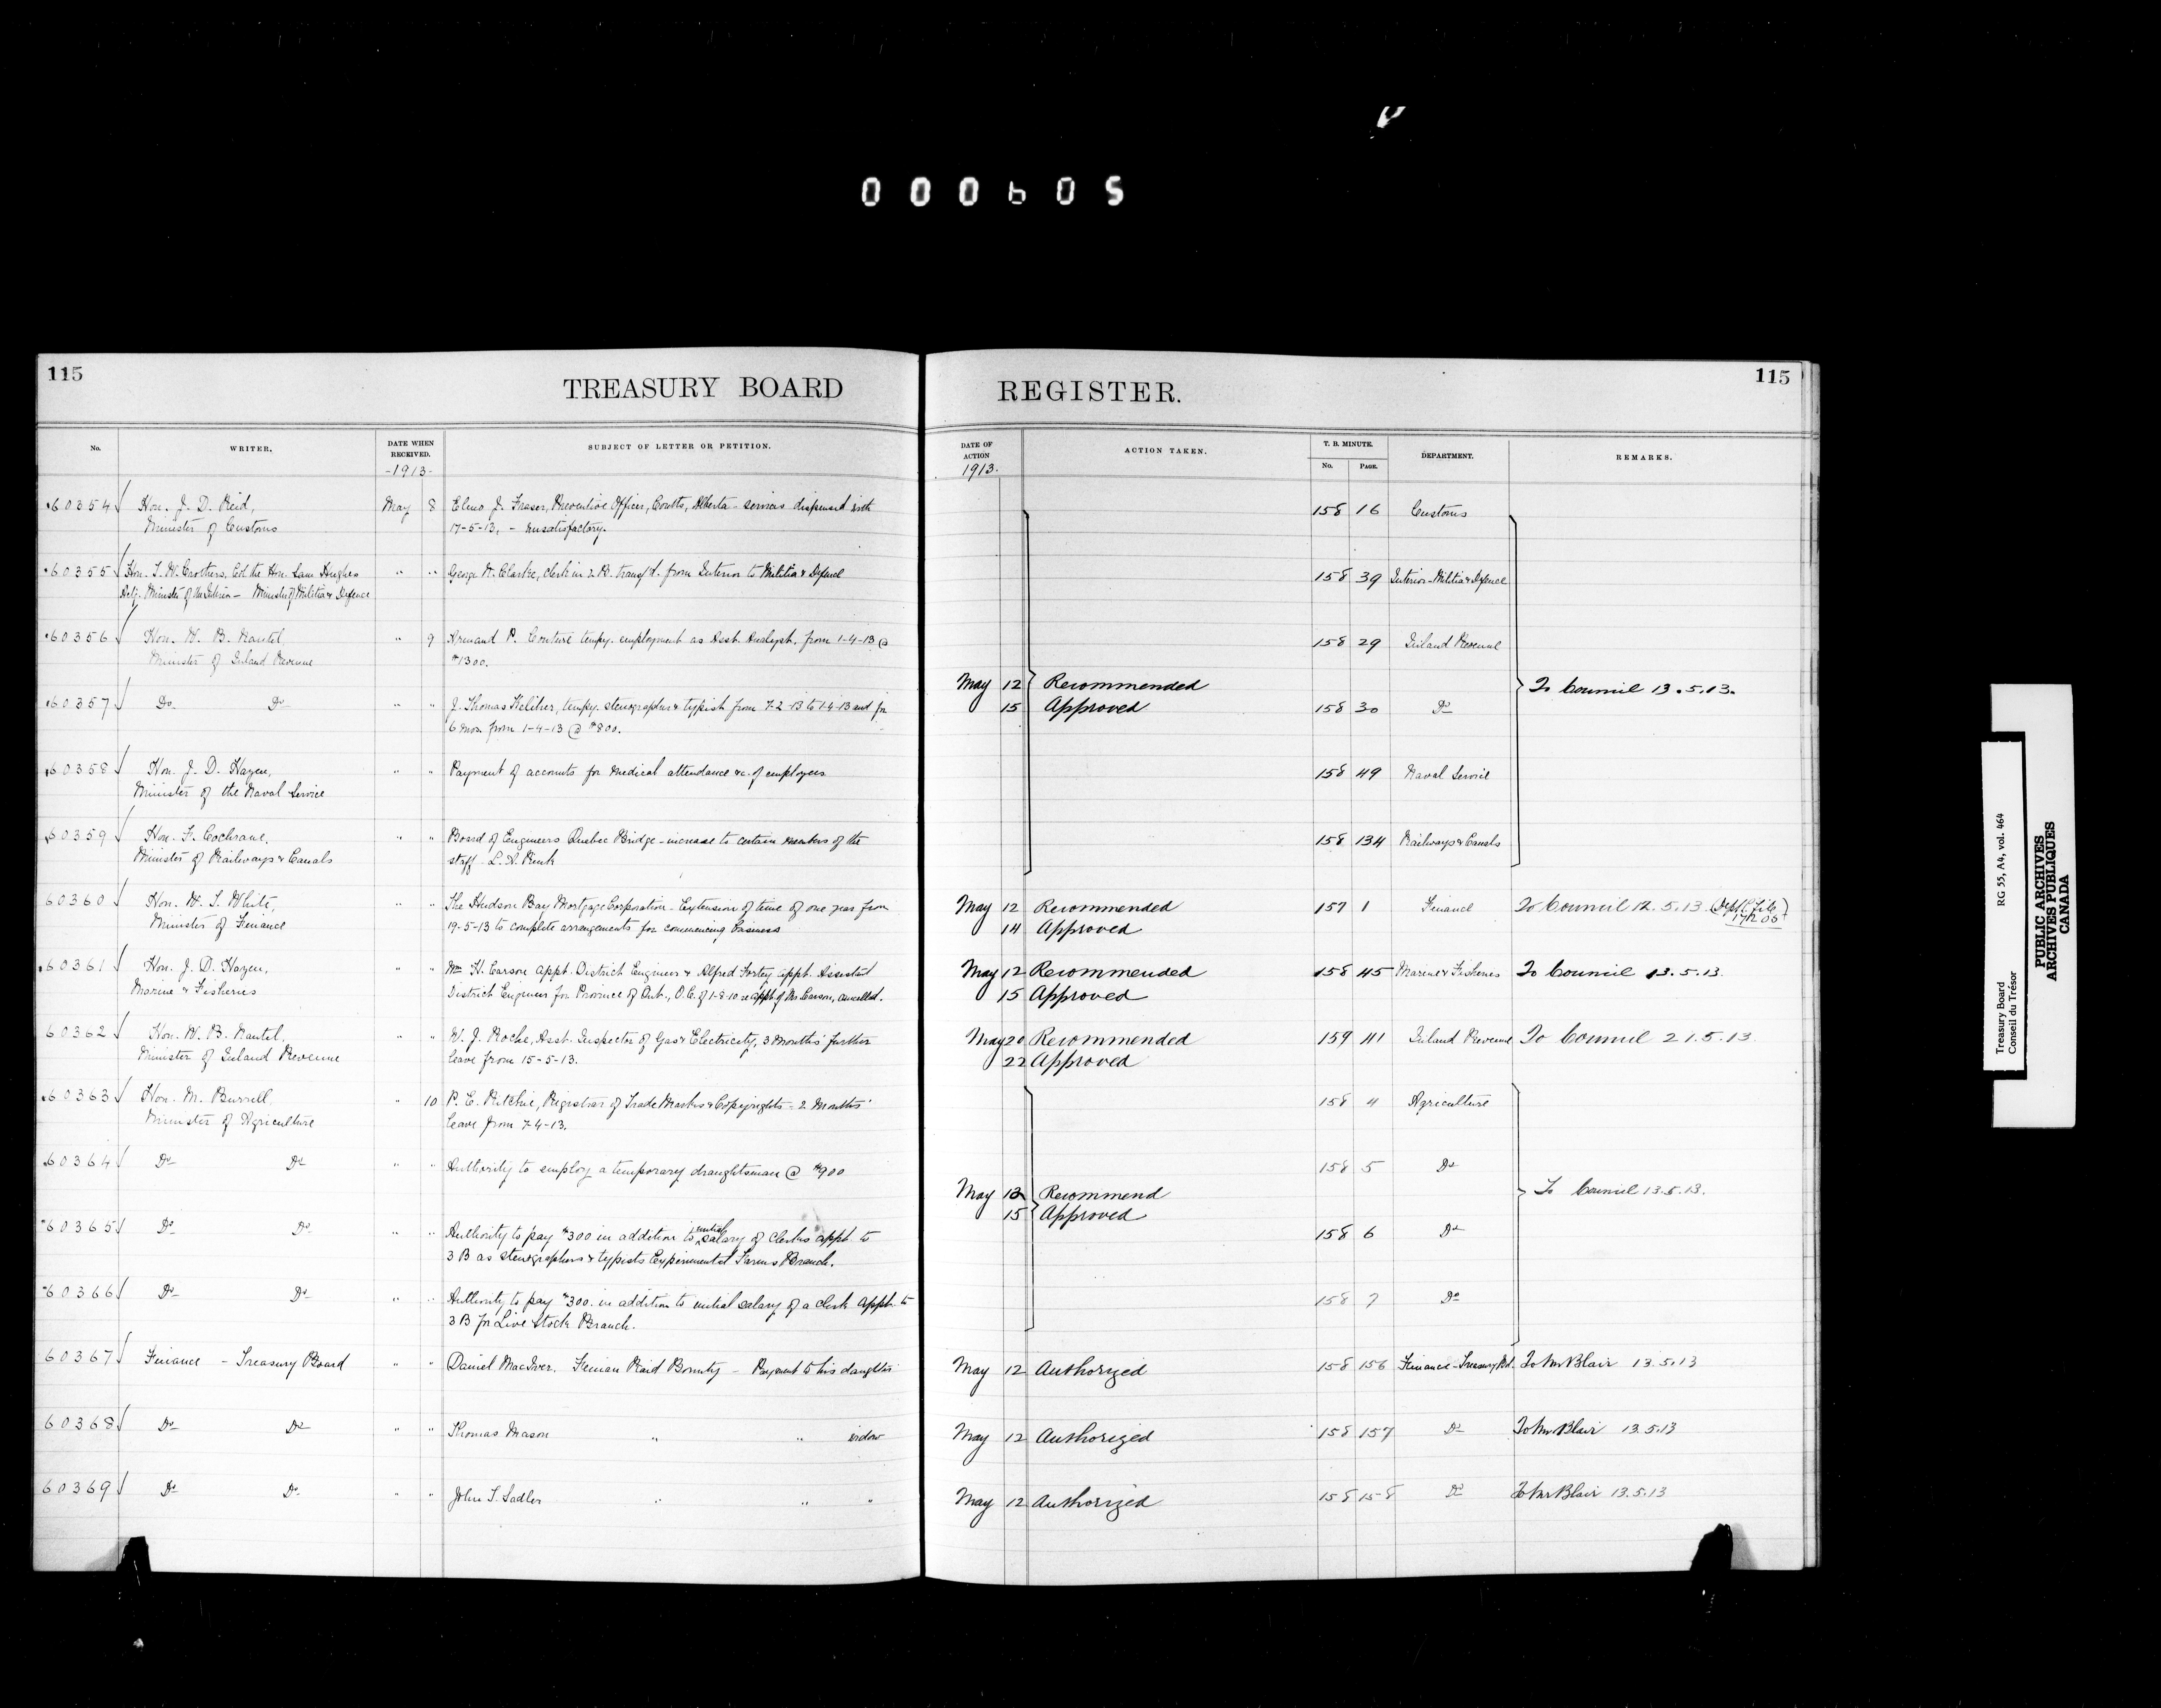 000605
115
TREASURY BOARD
No.
WRITER.
DATE WHEN RECEIVED.
-1913-
SUBJECT OF LETTER OR PETITION.
60354 Hon. J. D. Reid, May 8 Elmo J. Fraser, Preventive Officer, Coutts, Alberta - services dispensed with
Minister of Customs 17-5-13, - unsatisfactory.
60355 Hon. T. W. Crothers, Col. the Hon. Sam Hughes " " George W. Clarke, clerk in 2 B. transf'd. from Interior to Militia & Defence
Actg. Minister of the Interior - Minister of Militia & Defence
60356 Hon. W. B. Nantel, " 9 Armand P. Couture tempy. employment as Asst. Analyst. from 1-4-13 @
Minister of Inland Revenue $1300.
60357 Do. Do " " J. Thomas Keliher, tempy. stenographer & typist from 7-2-13 to 1-4-13 and for
6 mos. from 1-4-13 @ $800.
60358 Hon. J. D. Hazen, " " Payment of accounts for medical attendance &c. of employees
Minister of the Naval Service
60359 Hon. F. Cochrane, " " Board of Engineers Quebec Bridge - increase to certain members of the
Minister of Railways & Canals staff - L. A.
60360 Hon. W. T. White, " " The Hudson Bay Mortgage Corporation - Extension of time of one year from
Minister of Finance 19-5-13 to complete arrangements for commencing business
60361 Hon. J. D. Hazen, " " Wm H. Carson appt. District Engineer & Alfred Fortey appt. Assistant
Marine & Fisheries District Engineer for Province of Ont., O.C. of 1-8-10 re appt. of Mr Carson, cancelled.
60362 Hon. W. B. Nantel, " " W. J. Roche, Asst. Inspector of Gas & Electricity, 3 months' further
Minister of Inland Revenue leave from 15-5-13.
60363 Hon. M. Burrell, " 10 P. E. Ritchie, Registrar of Trade Marks & Copyrights - 2 months'
Minister of Agriculture leave from 7-4-13.
60364 Do Do " " Authority to employ a temporary draughtsman @ $900
60365 Do Do " " Authority to pay $300 in addition to initial salary of clerks appt. to
3 B as stenographers & typists Experimental Farms Branch.
60366 Do Do " " Authority to pay $300. in addition to initial salary of a clerk appt. to
3 B for Live Stock Branch.
60367 Finance - Treasury Board " " Daniel MacIver. Fenian Raid Bounty - Payment to his daughter
60368 Do Do " " Thomas Mason " " widow
60369 Do Do " " John T. Sadler " " "
REGISTER.
115
DATE OF ACTION
1913.
ACTION TAKEN.
T. B. MINUTE.
No. PAGE.
DEPARTMENT.
REMARKS.
158 16 Customs
158 39 Interior - Militia & Defence
158 29 Inland Revenue
May 12 Recommended To Council 13.5.13.
15 Approved 158 30 Do
158 49 Naval Service
158 134 Railways & Canals
May 12 Recommended 157 1 Finance To Council 12.5.13. (Dept'l. File
14 Approved
May 12 Recommended 158 45 Marine & Fisheries To Council 13.5.13.
15 Approved
May 20 Recommended 159 41 Inland Revenue To Council 21.5.13.
22 Approved
158 4 Agriculture
158 5 Do
May 12 Recommend To Council 13.5.13.
15 Approved
158 6 Do
158 7 Do
May 12 Authorized 158 156 Finance - Treasury Bd. To Mr Blair 13.5.13
May 12 Authorized 158 157 Do To Mr Blair 13.5.13
May 12 Authorized 158 158 Do To Mr Blair 13.5.13
Treasury Board RG 55, A4, vol. 464
Conseil du Trésor
PUBLIC ARCHIVES
ARCHIVES PUBLIQUES
CANADA